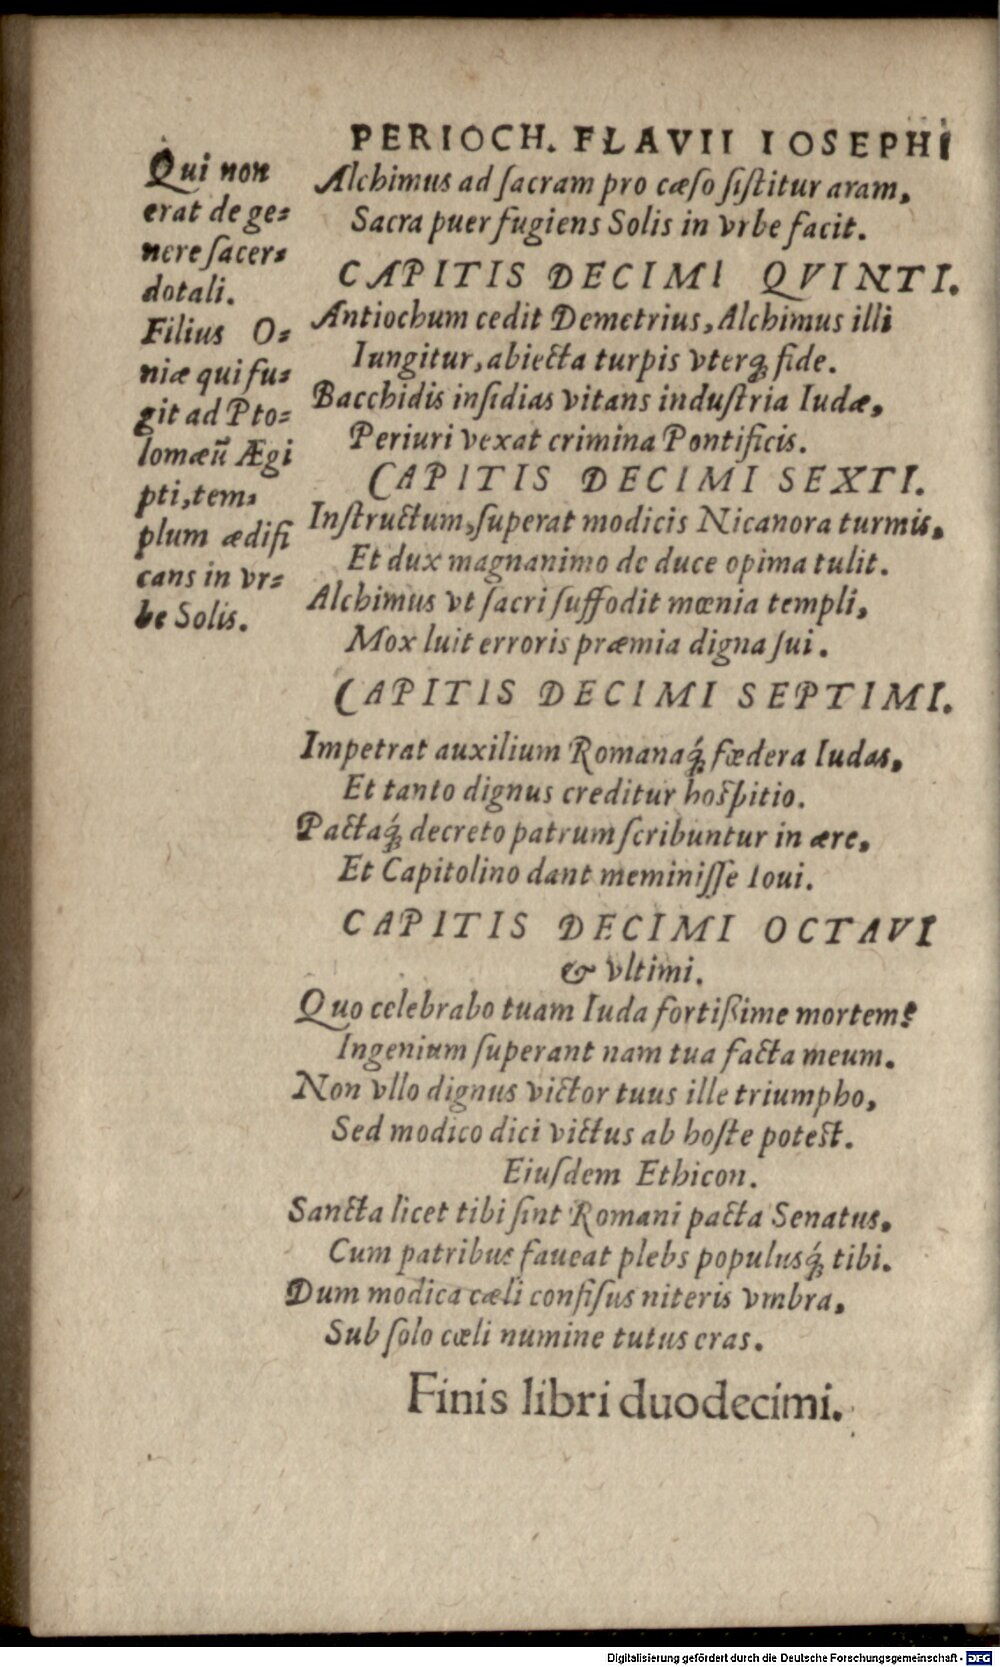 PERIOCH. FLAVII IOSEPHI
Qui non
erat de ge=
nere sacer=
dotali.
Filius O=
niæ qui fu=
git ad Pto=
lomæũ Ægi
pti, tem=
plum ædifi
cans in vr=
be Solis.
Alchimus ad sacram pro cæso sistitur aram,
Sacra puer fugiens Solis in vrbe facit.
CAPITIS DECIMI QVINTI.
Antiochum cedit Demetrius, Alchimus illi
Iungitur, abiecta turpis vterq́; fide.
Bacchidis insidias vitans industria Iudæ,
Periuri vexat crimina Pontificis.
CAPITIS DECIMI SEXTI.
Instructum, superat modicis Nicanora turmis,
Et dux magnanimo de duce opima tulit.
Alchimus vt sacri suffodit mœnia templi,
Mox luit erroris præmia digna sui.
CAPITIS DECIMI SEPTIMI.
Impetrat auxilium Romanaq́; fœdera Iudas,
Et tanto dignus creditur hospitio.
Pactaq́; decreto patrum scribuntur in ære,
Et Capitolino dant meminisse Ioui.
CAPITIS DECIMI OCTAVI
& vltimi.
Quo celebrabo tuam Iuda fortißime mortem?
Ingenium superant nam tua facta meum.
Non vllo dignus victor tuus ille triumpho,
Sed modico dici victus ab hoste potest.
Eiusdem Ethicon.
Sancta licet tibi sint Romani pacta Senatus,
Cum patribus faueat plebs populusq́; tibi.
Dum modica cæli confisus niteris vmbra,
Sub solo cœli numine tutus eras.
Finis libri duodecimi.
Digitalisierung gefördert durch die Deutsche Forschungsgemeinschaft - DFG